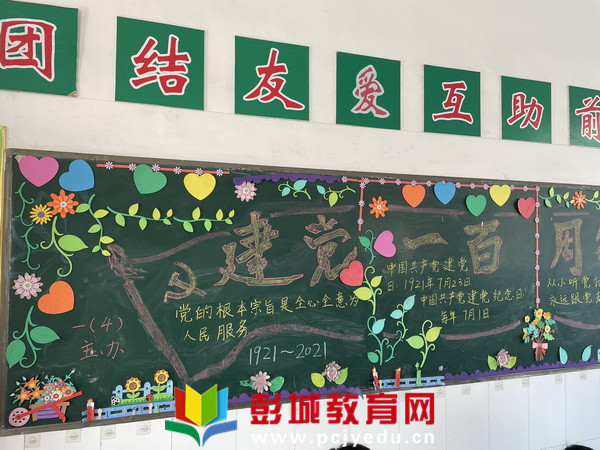 团结友爱互助前
建党一百周
中国共产党建党
日:1921年7月23日
中国共产党建党纪念日:
每年7月1日
从小听党
永远跟党
党的根本宗旨是全心全意为
人民服务
1921～2021
一(4)
主办
彭城教育网
www.pcjyedu.cn